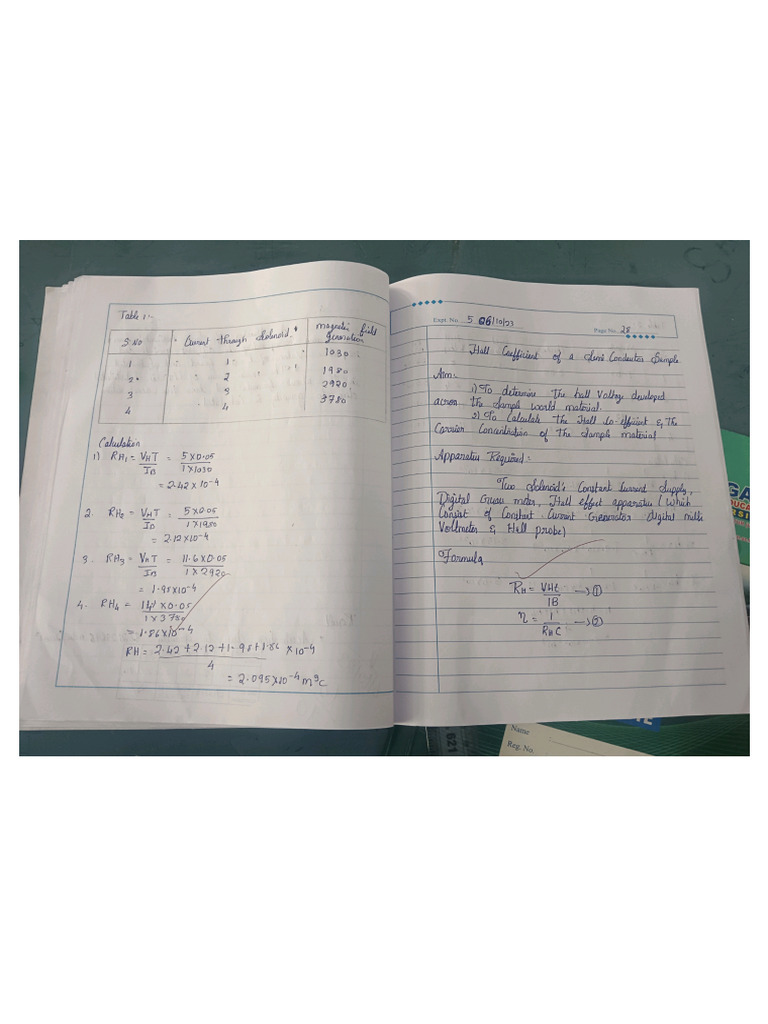 Table 1:-
S.NO | Current through Solenoid. | magnetic field generation
1 | 1 | 1030
2 | 2 | 1980
3 | 3 | 2920
4 | 4 | 3780
Calculation
1) RH1 = VHT/IB = 5×0.05/1×1030
= 2.42×10-4
2. RH2 = VHT/IB = 5×0.05/1×1980
= 2.12×10-4
3. RH3 = VHT/IB = 11.6×0.05/1×2920
= 1.98×10-4
4. RH4 = 14×0.05/1×3780
= 1.86×10-4
RH = 2.42+2.12+1.98+1.86/4 ×10-4
= 2.095×10-4 m3C
Expt. No. 5 06/10/23
Page No. 28
Hall Coefficient of a Semi Conductor Sample
Aim:
1) To determine The hall Voltage developed
across the Sample world material.
2) To Calculate The Hall Co-efficient & The
Carrier Concentration of The Sample material
Apparatus Required:
Two Solenoid's Constant Current Supply,
Digital Guess meter, Hall effect apparatus (Which
Consist of Constant Current Generator digital milli
Voltmeter & Hall probe)
Formula
RH = VHt/IB → ①
η = 1/RHC → ②
Name
Reg. No.
621